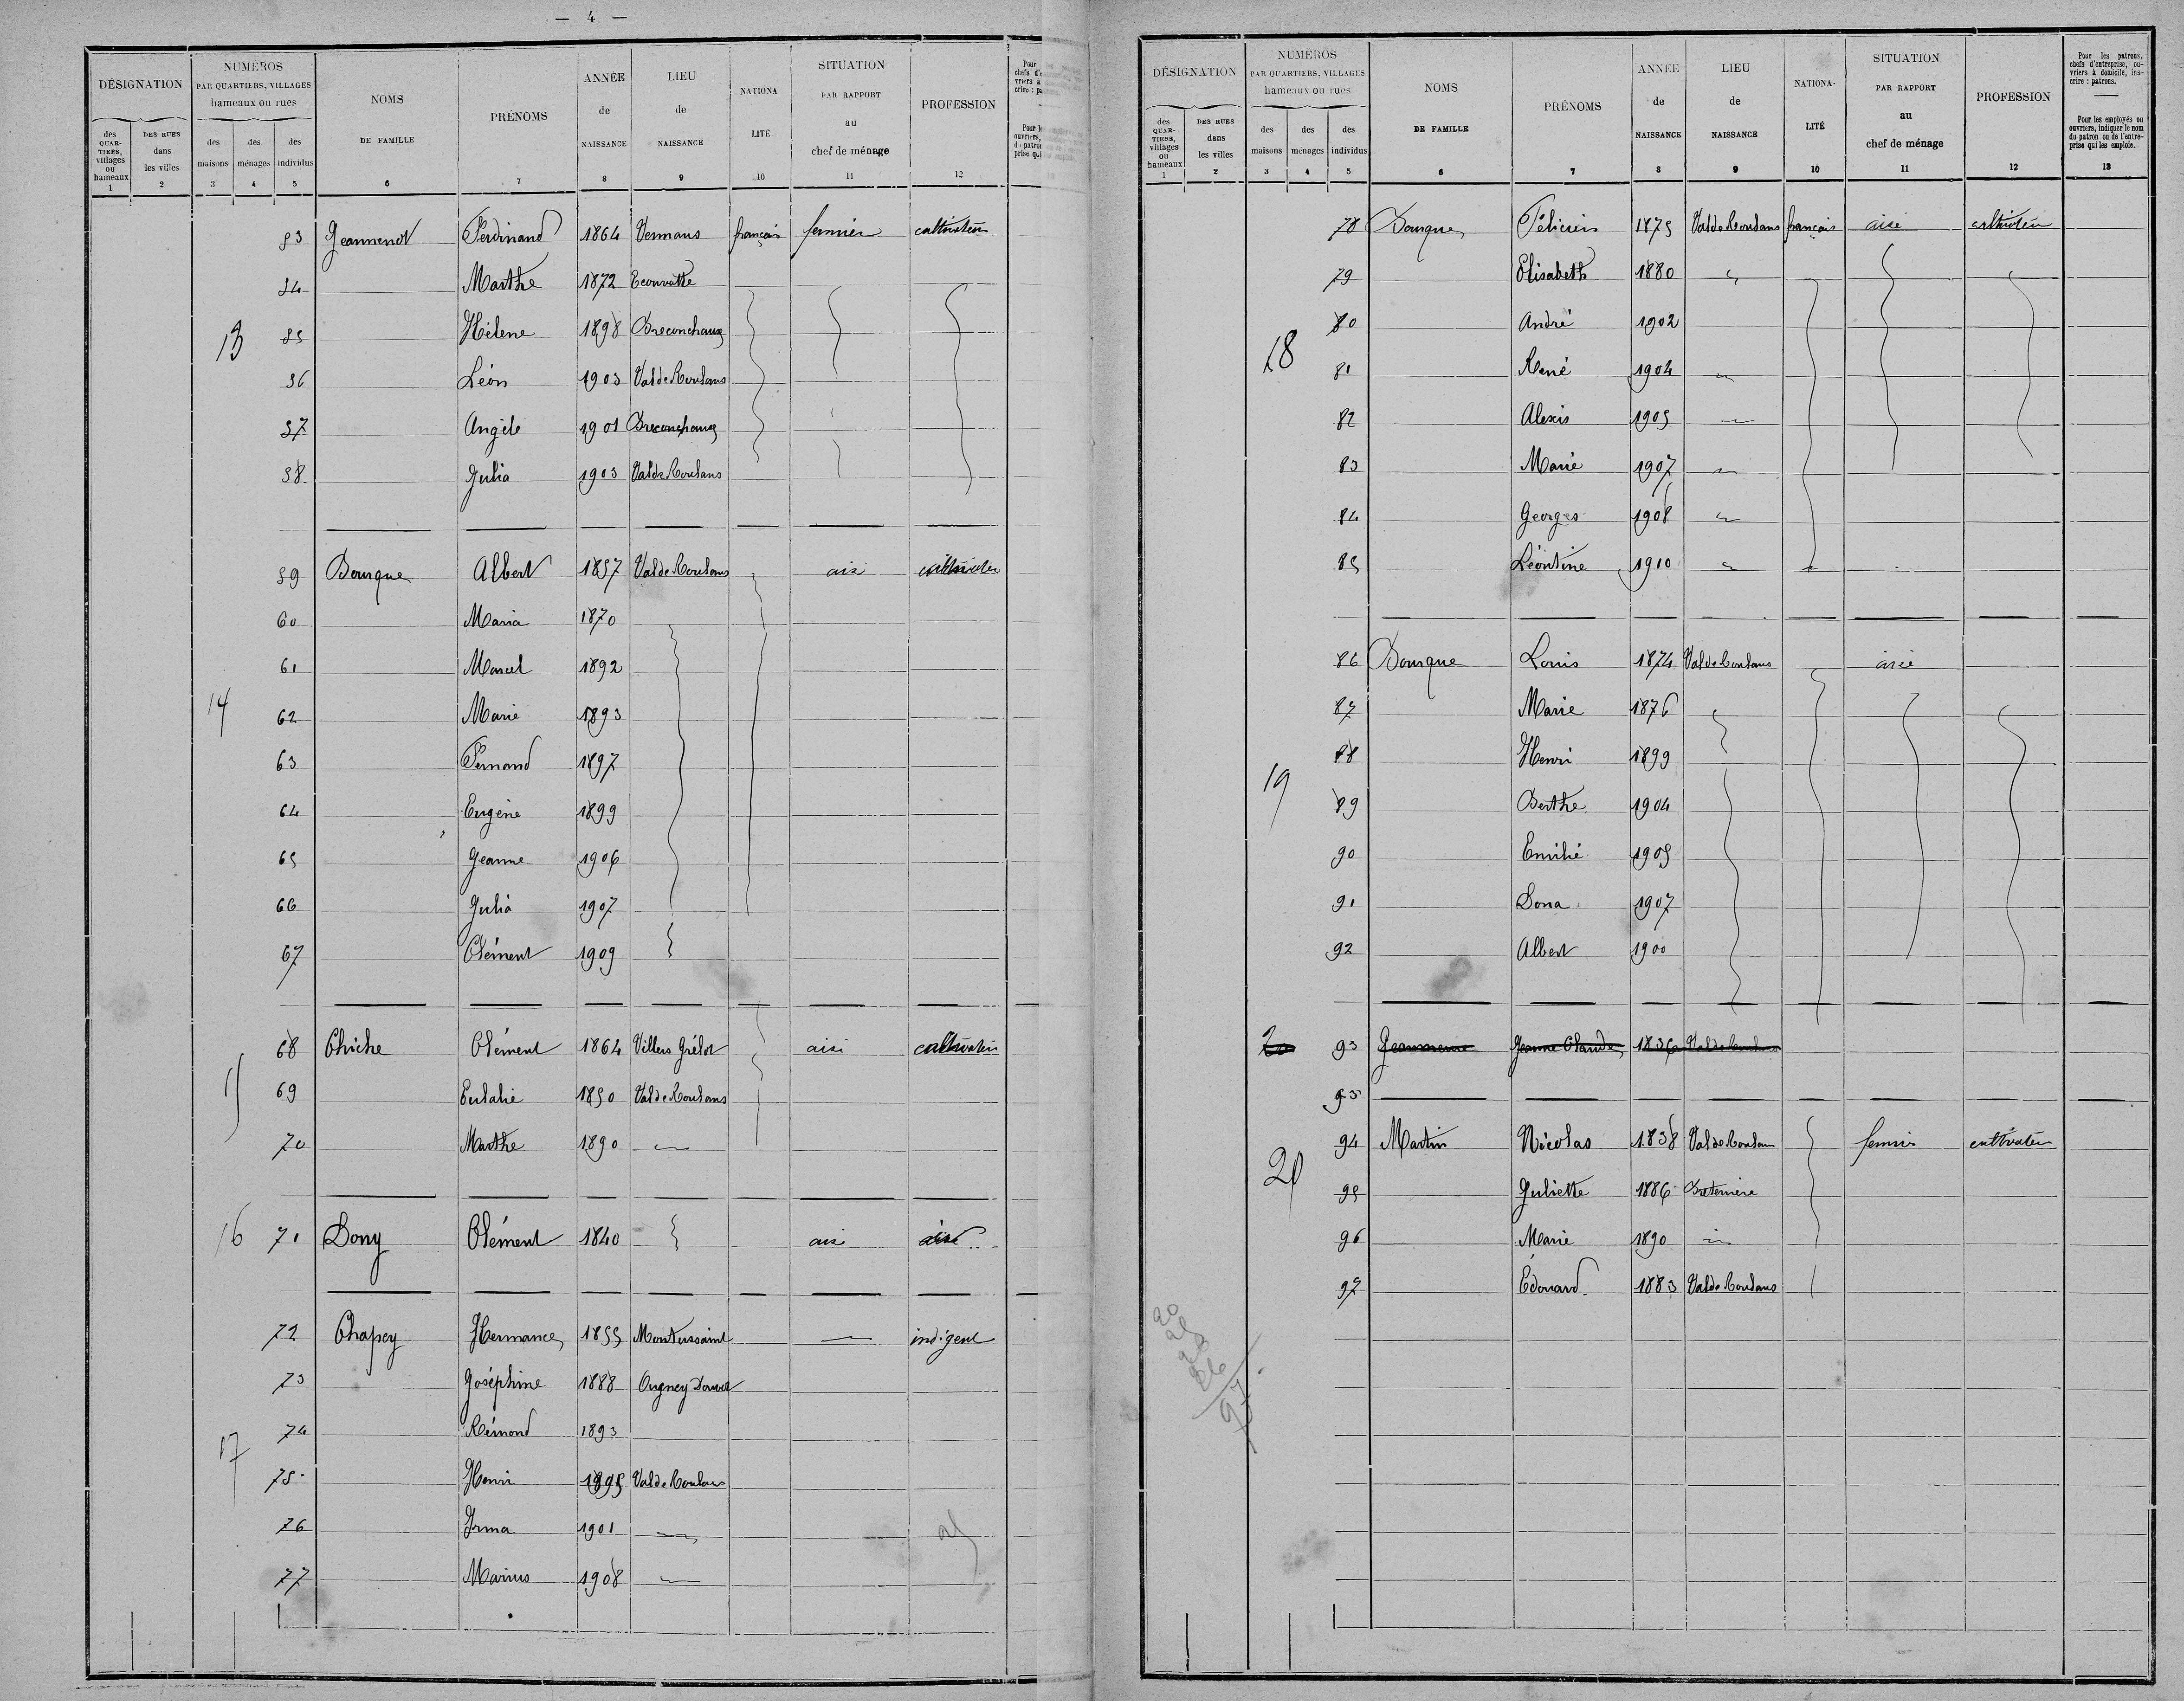 — 4 —
DÉSIGNATION
des QUARTIERS, villages ou hameaux 1
DES RUES dans les villes 2
NUMÉROS PAR QUARTIERS, VILLAGES hameaux ou rues
des maisons 3
des ménages 4
des individus 5
NOMS DE FAMILLE 6
PRÉNOMS 7
ANNÉE de NAISSANCE 8
LIEU de NAISSANCE 9
NATIONALITÉ 10
SITUATION PAR RAPPORT au chef de ménage 11
PROFESSION 12
13
53 Jeannenot Ferdinand 1864 Vennans français fermier cultivateur
54 Marthe 1872 Ecouvotte
55 Hélene 1898 Breconchaux
56 Léon 1903 Val de Roulans
57 Angèle 1901 Breconchaux
58 Julia 1903 Val de Roulans
14
59 Bourque Albert 1857 Val de Roulans aisé cultivateur
60 Maria 1870
61 Marcel 1892
62 Marie 1893
63 Fernand 1897
64 Eugène 1899
65 Jeanne 1906
66 Julia 1907
67 Clément 1909
15
68 Chiche Clément 1864 Villers Grélot aisé cultivateur
69 Eulalie 1850 Val de Roulans
70 Marthe 1890 "
16 71 Dony Clément 1840 aisé aisé
17
72 Chapey Hermance 1855 Montussaint — indigent
73 Joséphine 1888 Ougney Douvot
74 Rémond 1893
75 Henri 1895 Val de Roulans
76 Irma 1901 "
77 Marius 1908 "
DÉSIGNATION
des QUARTIERS, villages ou hameaux 1
DES RUES dans les villes 2
NUMÉROS PAR QUARTIERS, VILLAGES hameaux ou rues
des maisons 3
des ménages 4
des individus 5
NOMS DE FAMILLE 6
PRÉNOMS 7
ANNÉE de NAISSANCE 8
LIEU de NAISSANCE 9
NATIONALITÉ 10
SITUATION PAR RAPPORT au chef de ménage 11
PROFESSION 12
Pour les patrons, chefs d'entreprise, ouvriers à domicile, inscrire : patrons.
Pour les employés ou ouvriers, indiquer le nom du patron ou de l'entreprise qui les emploie. 13
18
78 Bourque Félicien 1875 Val de Roulans français aisé cultivateur
79 Elisabeth 1880 "
80 André 1902
81 René 1904 "
82 Alexis 1905 "
83 Marie 1907 "
84 Georges 1908 "
85 Léontine 1910 "
19
86 Bourque Louis 1874 Val de Roulans aisé
87 Marie 1876
88 Henri 1899
89 Berthe 1904
90 Emilie 1905
91 Dona 1907
92 Albert 1900
20 93 Jeanne Claude 1836 Val de Roulans
93
20
94 Martin Nicolas 1838 Val de Roulans fermier cultivateur
95 Juliette 1886
96 Marie 1890 "
97 Edouard 1883 Val de Roulans
97